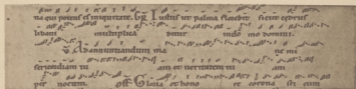 na qui potens es in iniquitate. Iustus ut palma florebit sicut cedrus
libani multiplica bitur in do mo domini.
V Ad annuntiandum ma ne mi
sericordiam tu am et veritatem tu am
per noctem. Off Gloria et hono re coronasti eum